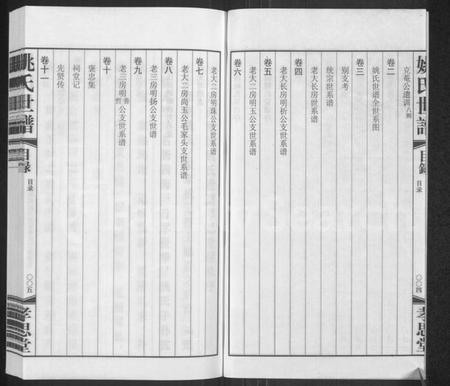 姚氏世譜
目錄
目录
〇〇四
孝思堂
立菴公遺訓八则
卷二
姚氏世谱全世系图
卷三
别支考
统宗世系谱
老大长房世系谱
卷四
老大长房明祈公支世系谱
卷五
老大二房明玉公支世系谱
卷六
老大二房明珠公支世系谱
卷七
老大二房尚玉公毛家头支世系谱
卷八
老三房明扬公支世谱
卷九
老三房明善哲公支世系谱
卷十
褒忠集
祠堂记
先贤传
卷十一
姚氏世譜
目錄
目录
〇〇五
孝思堂